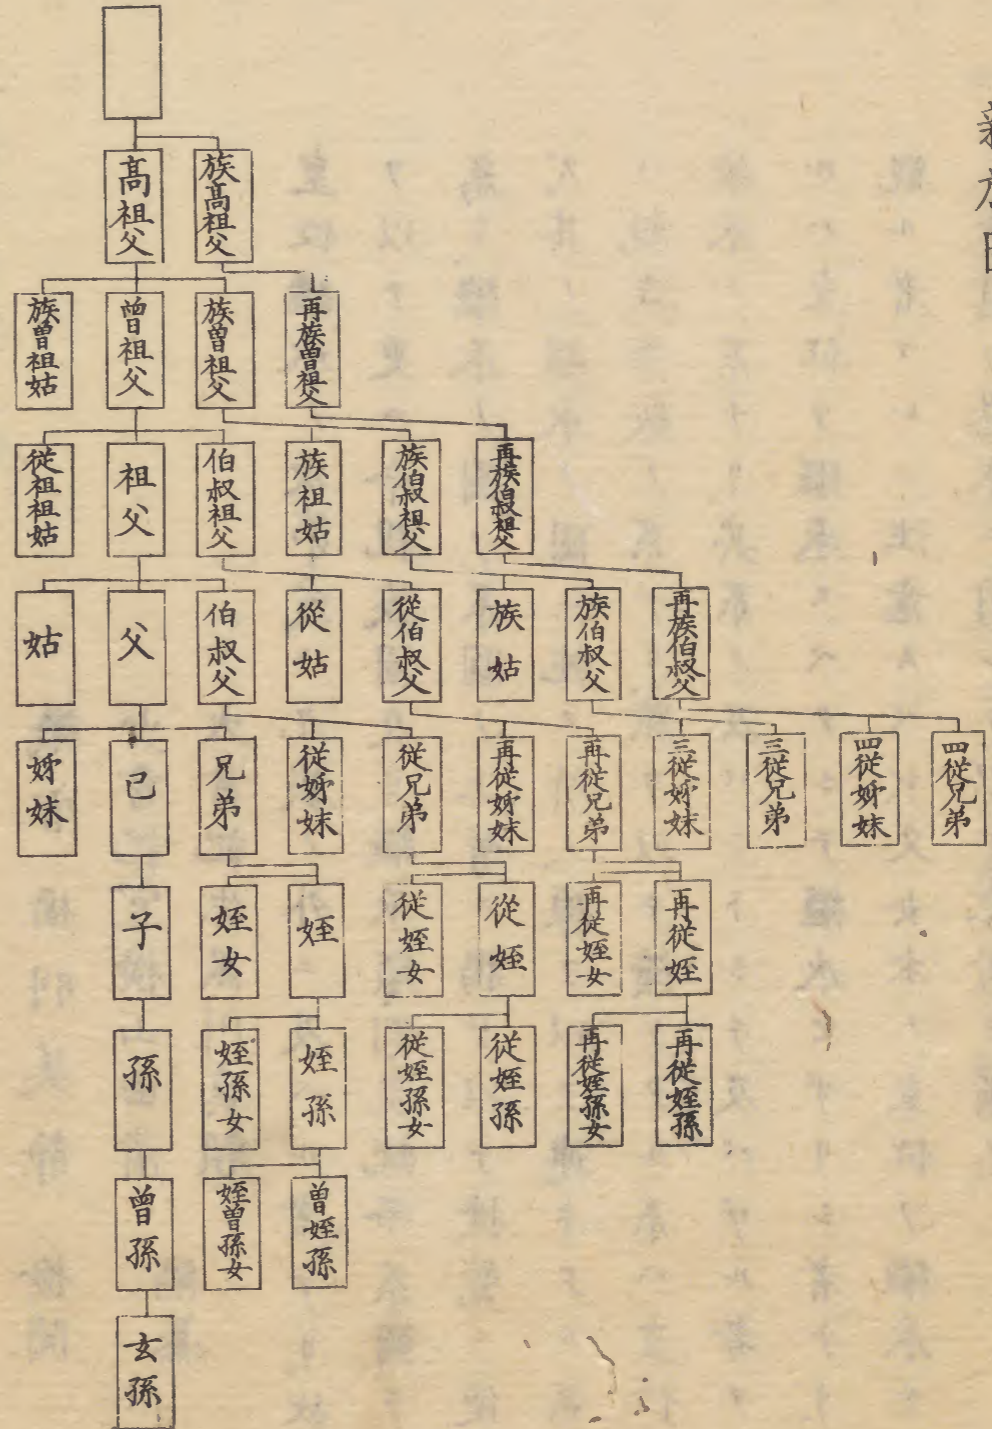 親族図
高祖父
族高祖父
族曽祖姑
曽祖父
族曽祖父
再族曽祖父
従祖祖姑
祖父
伯叔祖父
族祖姑
族伯叔祖父
再族伯叔祖父
姑
父
伯叔父
従姑
從伯叔父
族姑
族伯叔父
再族伯叔父
姉妹
己
兄弟
従姉妹
従兄弟
再従姉妹
再従兄弟
三従姉妹
三従兄弟
四従姉妹
四従兄弟
子
姪女
姪
従姪女
從姪
再従姪女
再従姪
孫
姪孫女
姪孫
従姪孫女
従姪孫
再従姪孫女
再従姪孫
曽孫
姪曽孫女
曽姪孫
玄孫